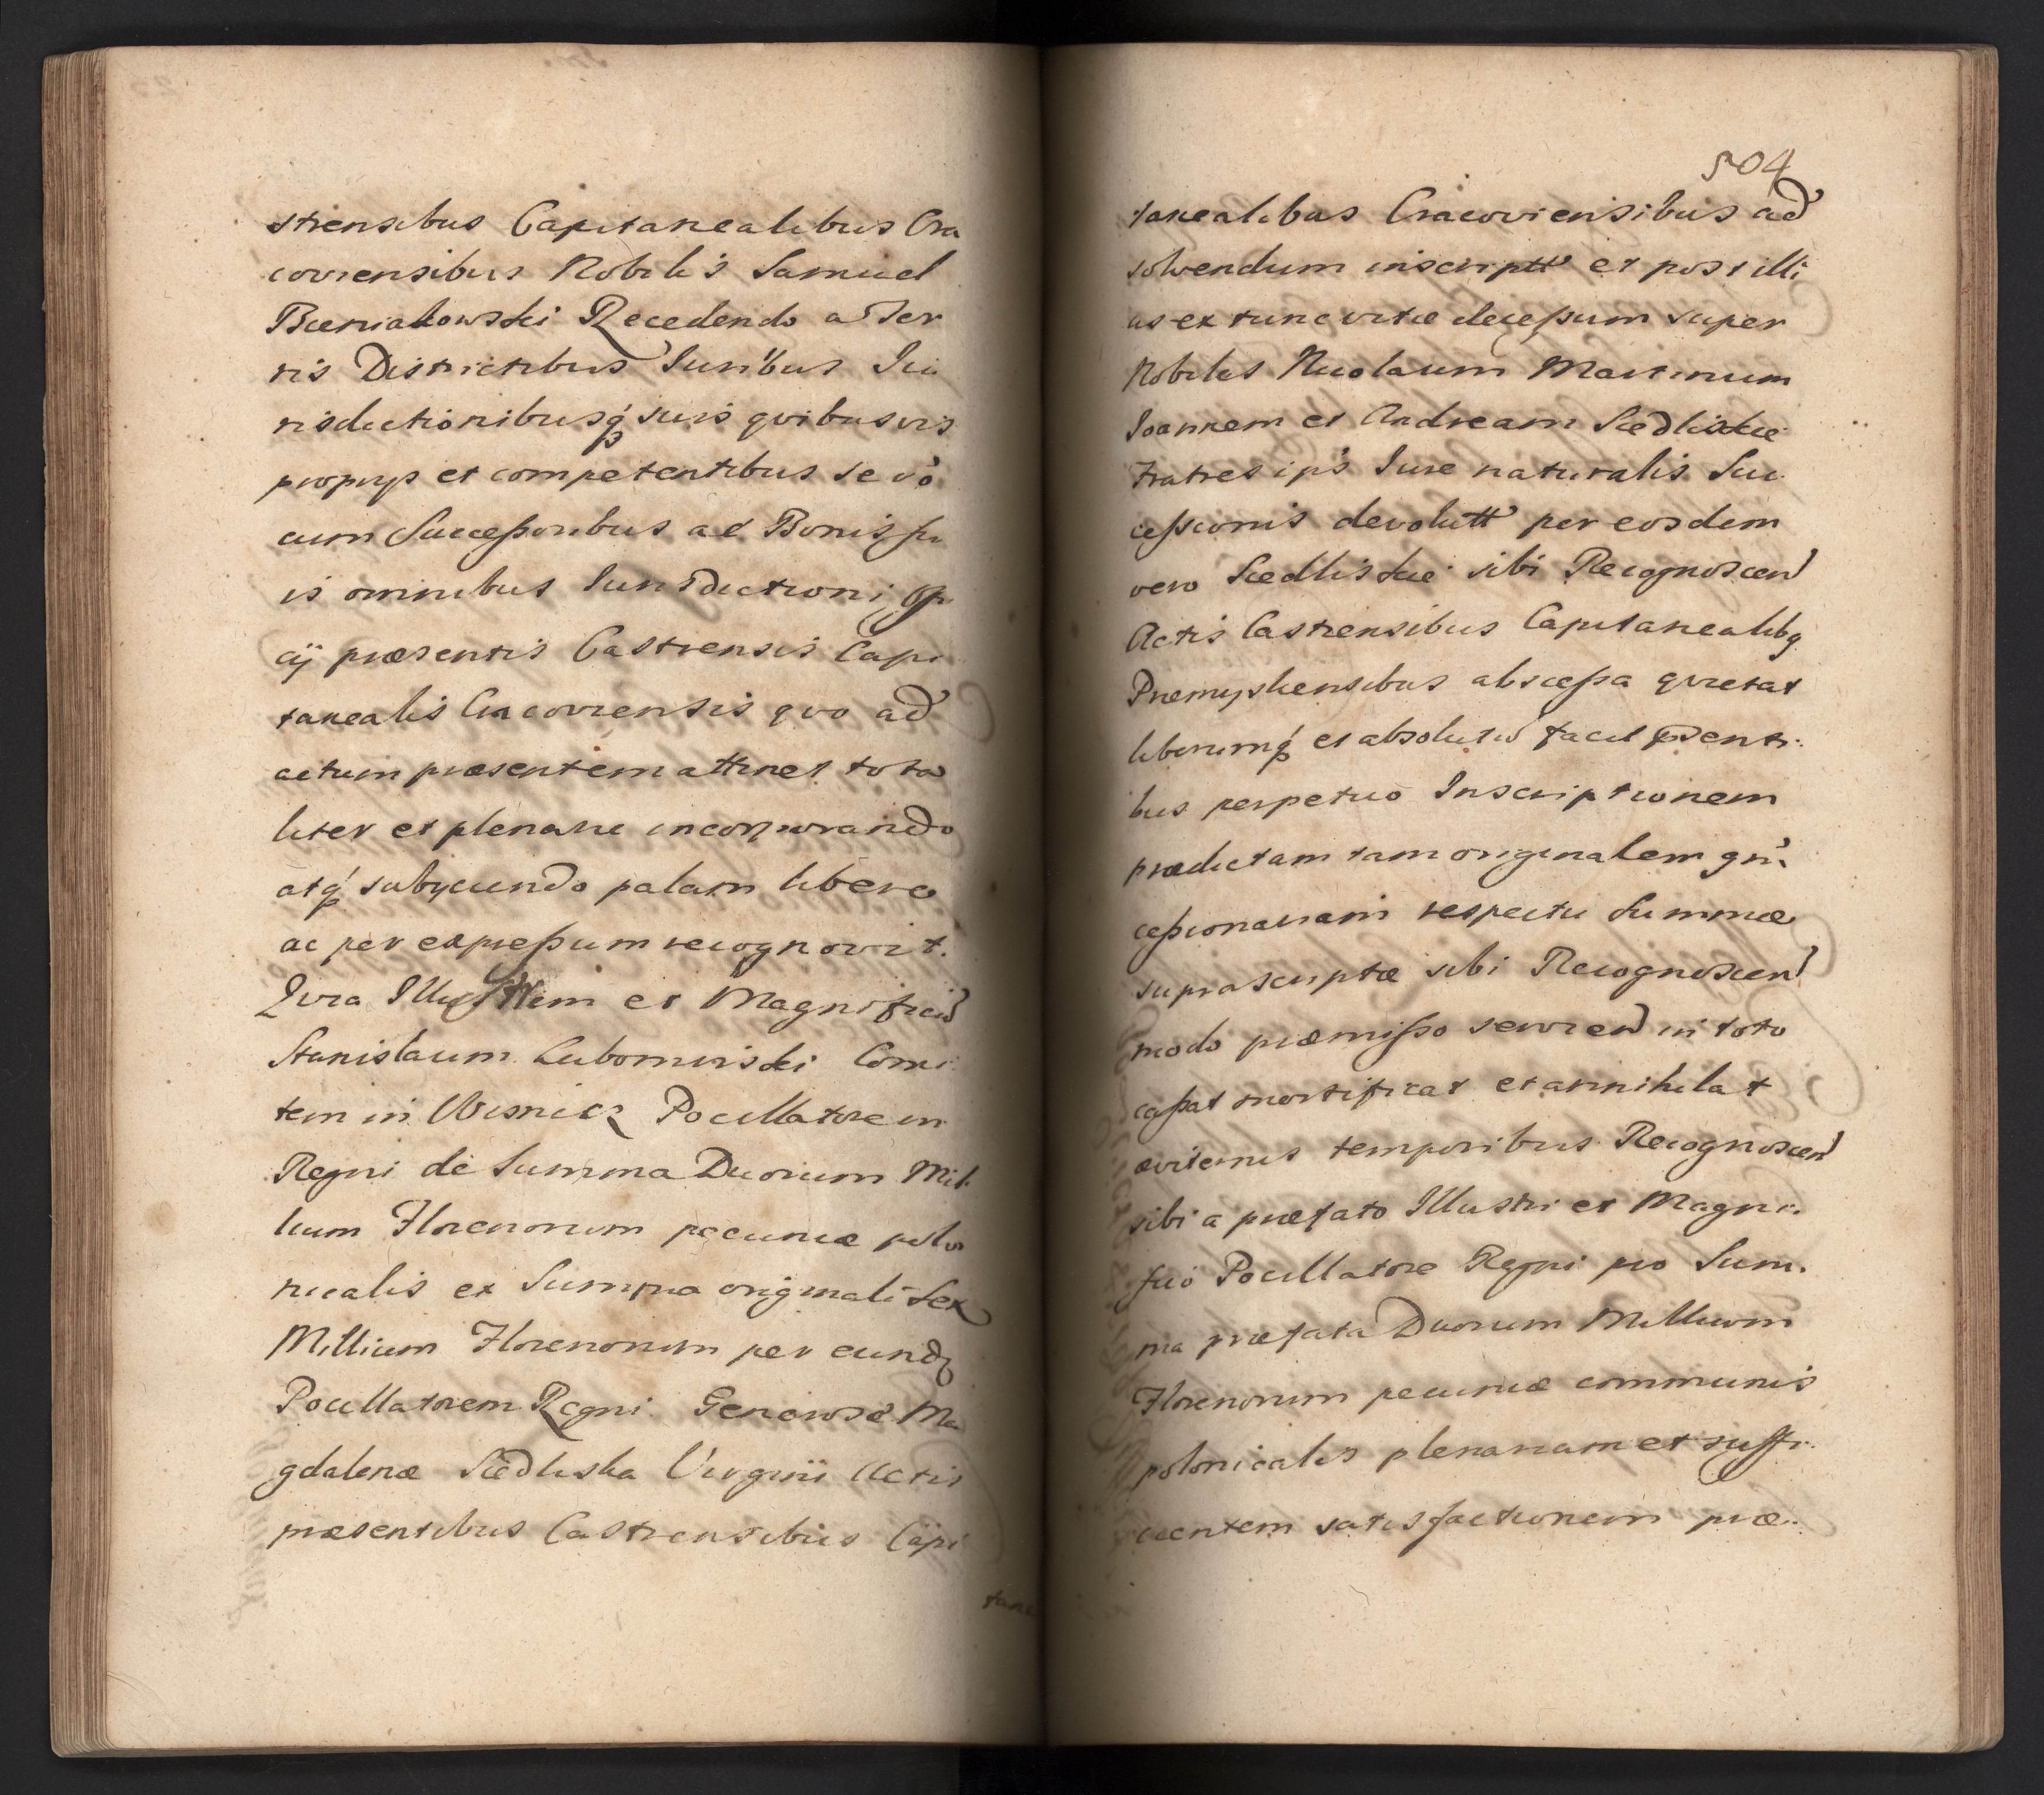 strensibus Capitanealibus Cra
coviensibus Nobilis Samuel
Bieniakowski Recedendo a Ter
ris Districtibus Iuribus Iu
risdictionibusq́ suis qvibusvis
proprys et competentibus se vo
cum Successoribus ac Bonis su
is omnibus Iurisdictioni Offi
cÿ præsentis Castrensis Capi
tanealis Cracoviensis qvo ad
actum præsentem attinet tota
liter et plenarie incorporando
atq́ subyciendo palam libere
ac per expressum recognovit.
Qvia Illustrem et Magnificū
Stanislaum Lubomirski Comi
tem in Wisnicz Pocillatorem
Regni de Summa Duorum Mil
lium Florenorum pecuniæ polo
nicalis ex Summa originali Sex
Millium Florenorum per eundȩ
Pocillatorem Regni Generosæ Ma
gdalenæ Siedliska Virgini Actis
præsentibus Castrensibus Capi
tane
504
tanealibus Cracoviensibus ad
solvendum inscriptt et post illi
us ex tunc vitæ decessum super
Nobiles Nicolaum Martinum
Joannem et Andream Siedliskie
Fratres ips Iure naturalis Suc
cessionis devolutt per eosdem
vero Siedliskie sibi Recognoscen
Actis Castrensibus Capitanealibq
Premysliensibus abscessa qvietat
liberumq́ et absolutū facit psenti
bus perpetuo Inscriptionem
prædictam tam originalem qm̃
cessionariam respectu Summæ
suprascriptæ sibi Recognoscen
modo præmisso servien in toto
cassat mortificat et annihilat
æviternis temporibus Recognoscen
sibi a præfato Illustri et Magni
fico Pocillatore Regni pro Sum
ma præfata Duorum Millium
Florenorum pecuniæ communis
polonicalis plenariam et suffi
cientem satisfactionem præ